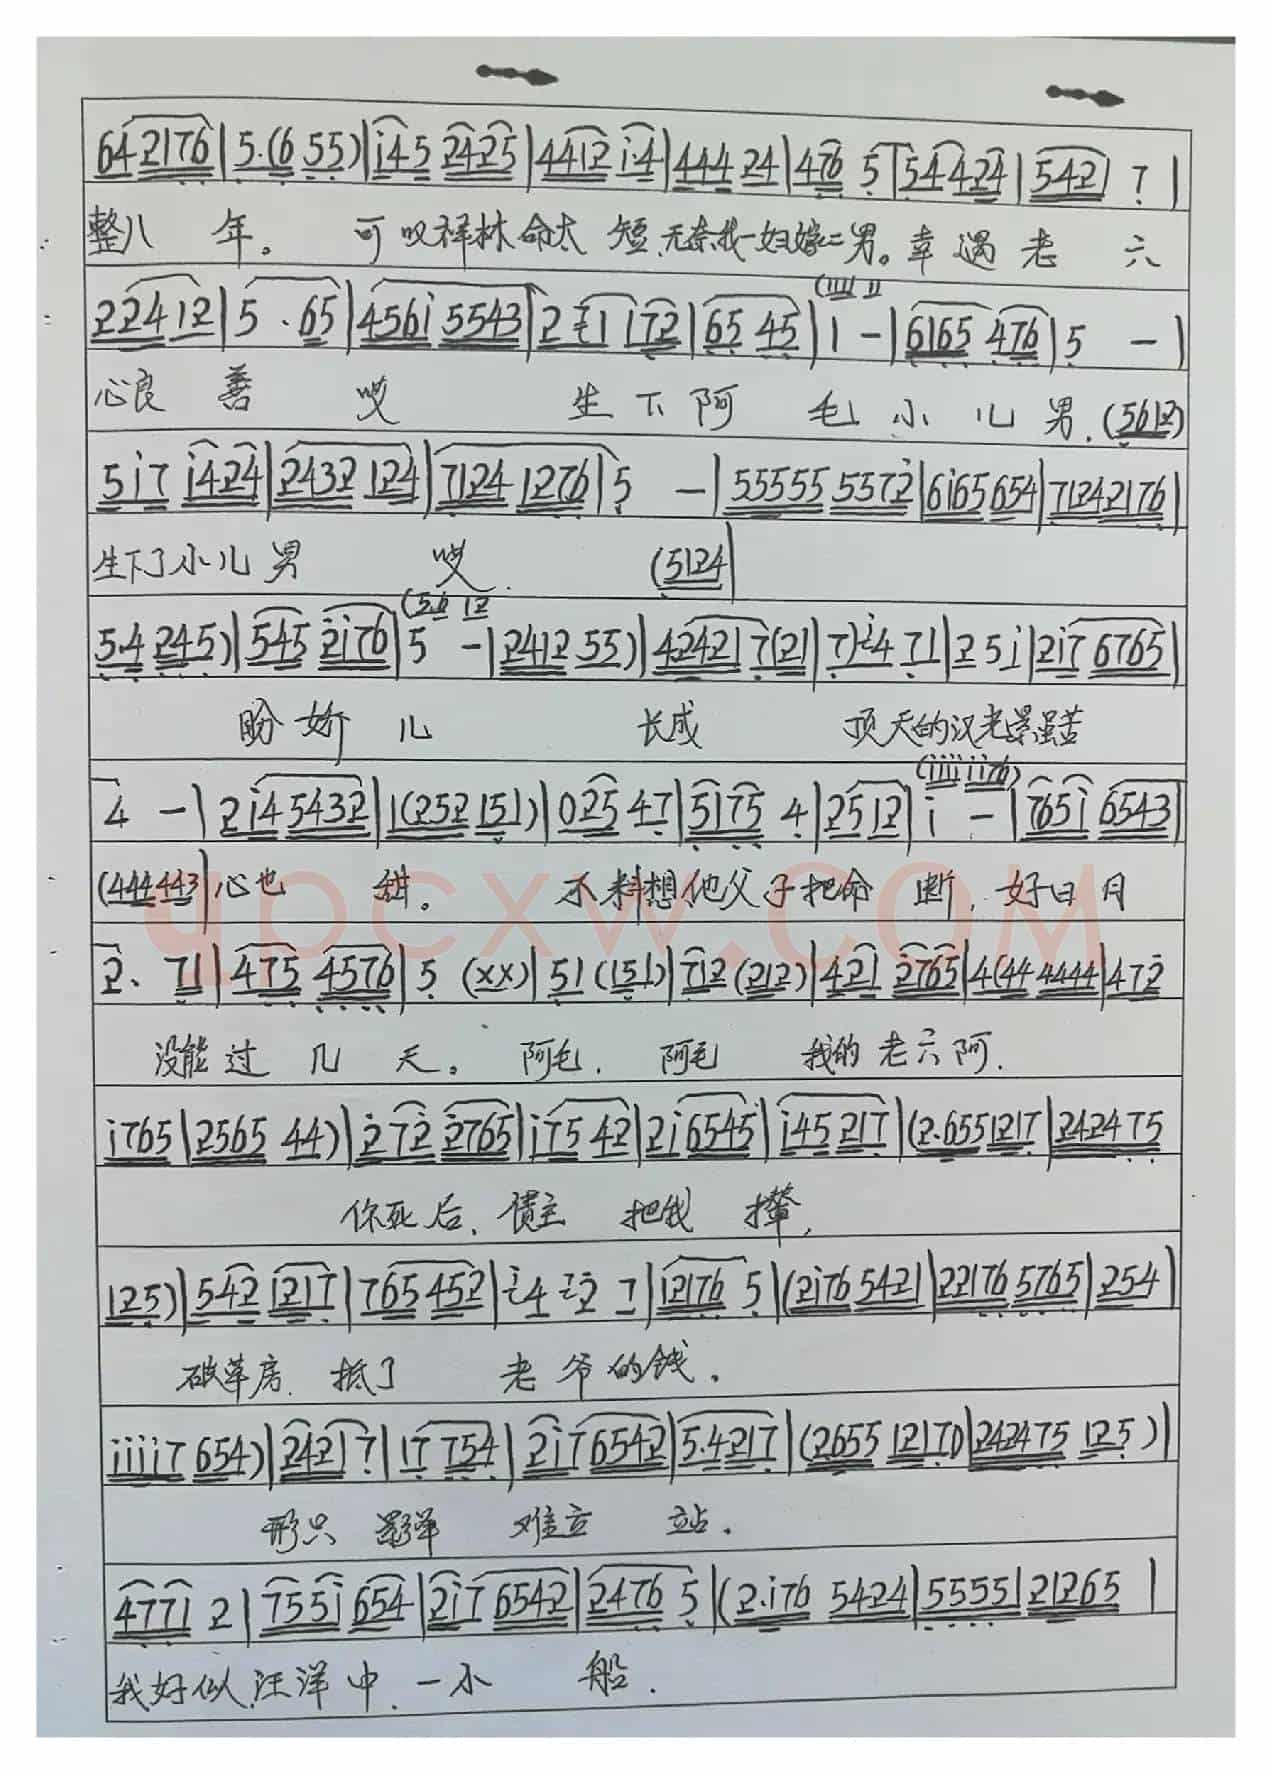 642176|5.(655)|i452425|4412i.4|44424|4765|54424|5427|
整八 年。 可叹祥林命太 短,无奈我一妇嫁二男。幸遇老 六
(iiiiii
22412|5.65|456i5543|2 1172|6545|1-|6165476|5 -|
心良 善 哎 生下阿 毛小儿男.(5612)
5i7 i424|2432 124|7124 1276|5 -|55555 5572|6i65654|71242176|
生下了小儿男 哎. (5124|
(56 12
5.4 245)|545 2i76|5 -|2412 55)|424217(21|7)47i|25i|2i7 6765|
盼娇儿 长成 顶天的汉光景虽苦
(iiiiii76)
4 -|2i45432|1(252151)|025 47|5175 4|2512|i -|765i 6543|
(444443|心也 甜。 不料想他父子把命 断,好日月
upcxw.com
2. 71|475 4576|5 (xx)|51(151)|712(212)|421 2765|4(44 4444|472
没能过 几 天。 阿毛, 阿毛 我的老六阿.
i765|2565 44)|272 2765|i7542|2i6545|i45217|(2.6551217|242475
你死后,债主 把我 撵,
125)|542 1217|765452|4 2 7|12176 5|(2i76 5421|22176 5765|254|
破草房. 抵了 老爷的钱.
iiii7 654)|24217|17 754|2i7 6542|5.4217|(2655 1217)|242475 125)|
形只 影单 难立 站.
477i 2|755i 654|2i7 6542|2476 5|(2.i76 5424|5555|21265|
我好似,汪洋中.一小 船.